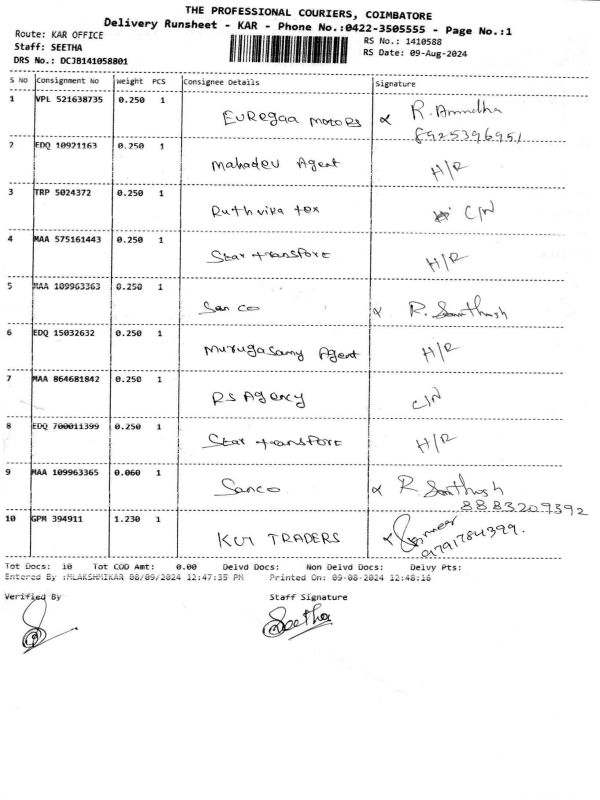 THE PROFESSIONAL COURIERS, COIMBATORE
Delivery Runsheet - KAR - Phone No.:0422-3505555 - Page No.:1
Route: KAR OFFICE
RS No.: 1410588
Staff: SEETHA
RS Date: 09-Aug-2024
DRS No.: DCJB141058801
S No Consignment No Weight PCS Consignee Details Signature
1 VPL 521638735 0.250 1 EURegaa motoRs R. Amudha
8925396951
2 EDQ 10921163 0.250 1 Mahadev Agent H/R
3 TRP 5024372 0.250 1 Ruthvika tex C/N
4 MAA 575161443 0.250 1 Star transport H/R
5 MAA 109963363 0.250 1 Sanco R. Santhosh
6 EDQ 15032632 0.250 1 Murugasamy Agent H/R
7 MAA 864681842 0.250 1 RS Agency C/N
8 EDQ 700011399 0.250 1 Star transport H/R
9 MAA 109963365 0.060 1 Sanco R Santhosh
8883209392
10 GPM 394911 1.230 1 TRADERS
9791784399.
Tot Docs: 10 Tot COD Amt: 0.00 Delvd Docs: Non Delvd Docs: Delvy Pts:
Entered By :MLAKSHMIKAR 08/09/2024 12:47:35 PM Printed On: 09-08-2024 12:48:16
Verified By Staff Signature
Seetha